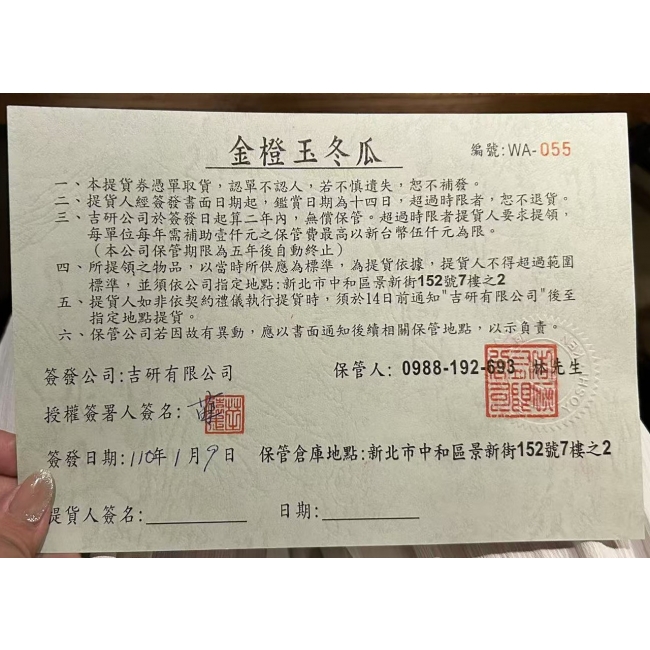 金橙玉冬瓜
編號:WA-055
一、本提貨券憑單取貨，認單不認人，若不慎遺失，恕不補發。
二、提貨人經簽發書面日期起，鑑賞日期為十四日，超過時限者，恕不退貨。
三、吉研公司於簽發日起算二年內，無償保管。超過時限者提貨人要求提領，
每單位每年需補助壹仟元之保管費最高以新台幣伍仟元為限。
（本公司保管期限為五年後自動終止）
四、所提領之物品，以當時所供應為標準，為提貨依據，提貨人不得超過範圍
標準，並須依公司指定地點:新北市中和區景新街152號7樓之2
五、提貨人如非依契約禮儀執行提貨時，須於14日前通知"吉研有限公司"後至
指定地點提貨。
六、保管公司若因故有異動，應以書面通知後續相關保管地點，以示負責。
簽發公司:吉研有限公司
保管人: 0988-192-693 林先生
授權簽署人簽名:
簽發日期:110年1月9日
保管倉庫地點:新北市中和區景新街152號7樓之2
提貨人簽名:
日期: